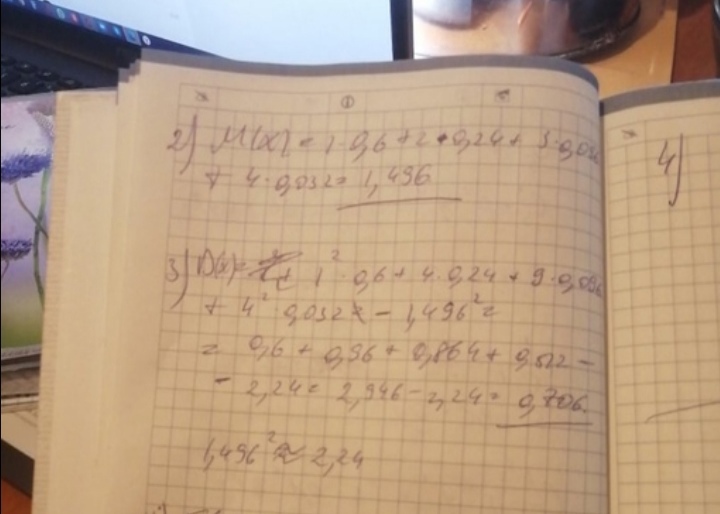 2) M(x) = 1·0,6 + 2·0,24 + 3·0,096
+ 4·0,032 = 1,496
3) D(x) = 1²·0,6 + 4·0,24 + 9·0,096
+ 4²·0,032 - 1,496² =
= 0,6 + 0,96 + 0,864 + 0,522 -
- 2,24 = 2,946 - 2,24 = 0,706.
1,496² ≈ 2,24
4)